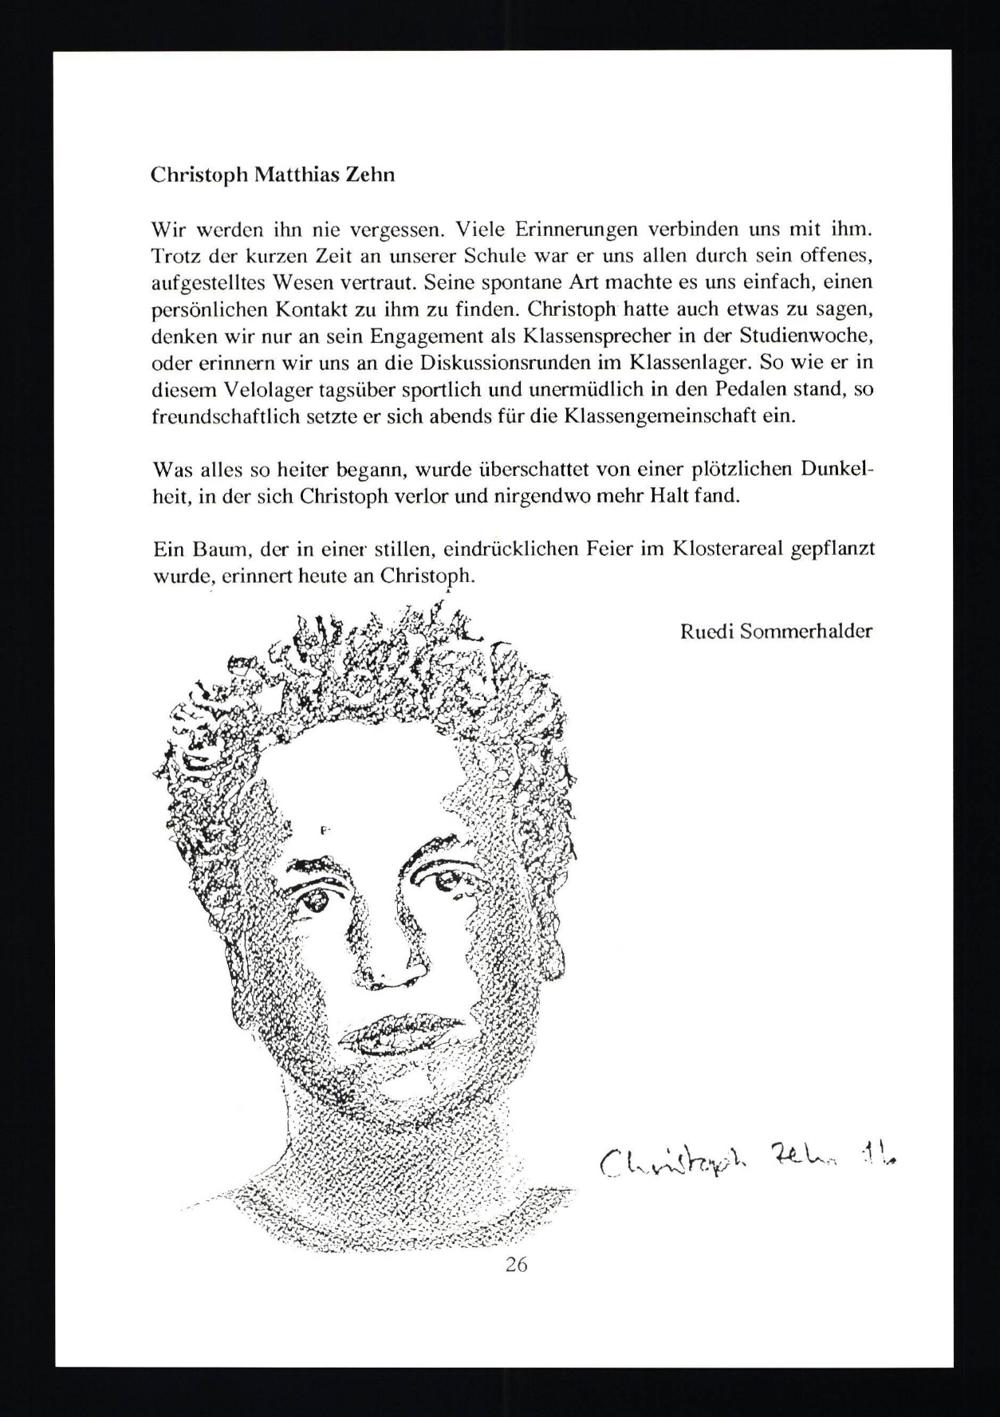 Christoph Matthias Zehn
Wir werden ihn nie vergessen. Viele Erinnerungen verbinden uns mit ihm.
Trotz der kurzen Zeit an unserer Schule war er uns allen durch sein offenes,
aufgestelltes Wesen vertraut. Seine spontane Art machte es uns einfach, einen
persönlichen Kontakt zu ihm zu finden. Christoph hatte auch etwas zu sagen,
denken wir nur an sein Engagement als Klassensprecher in der Studienwoche,
oder erinnern wir uns an die Diskussionsrunden im Klassenlager. So wie er in
diesem Velolager tagsüber sportlich und unermüdlich in den Pedalen stand, so
freundschaftlich setzte er sich abends für die Klassengemeinschaft ein.
Was alles so heiter begann, wurde überschattet von einer plötzlichen Dunkel-
heit, in der sich Christoph verlor und nirgendwo mehr Halt fand.
Ein Baum, der in einer stillen, eindrücklichen Feier im Klosterareal gepflanzt
wurde, erinnert heute an Christoph.
Ruedi Sommerhalder
Christoph Zehn 1b
26